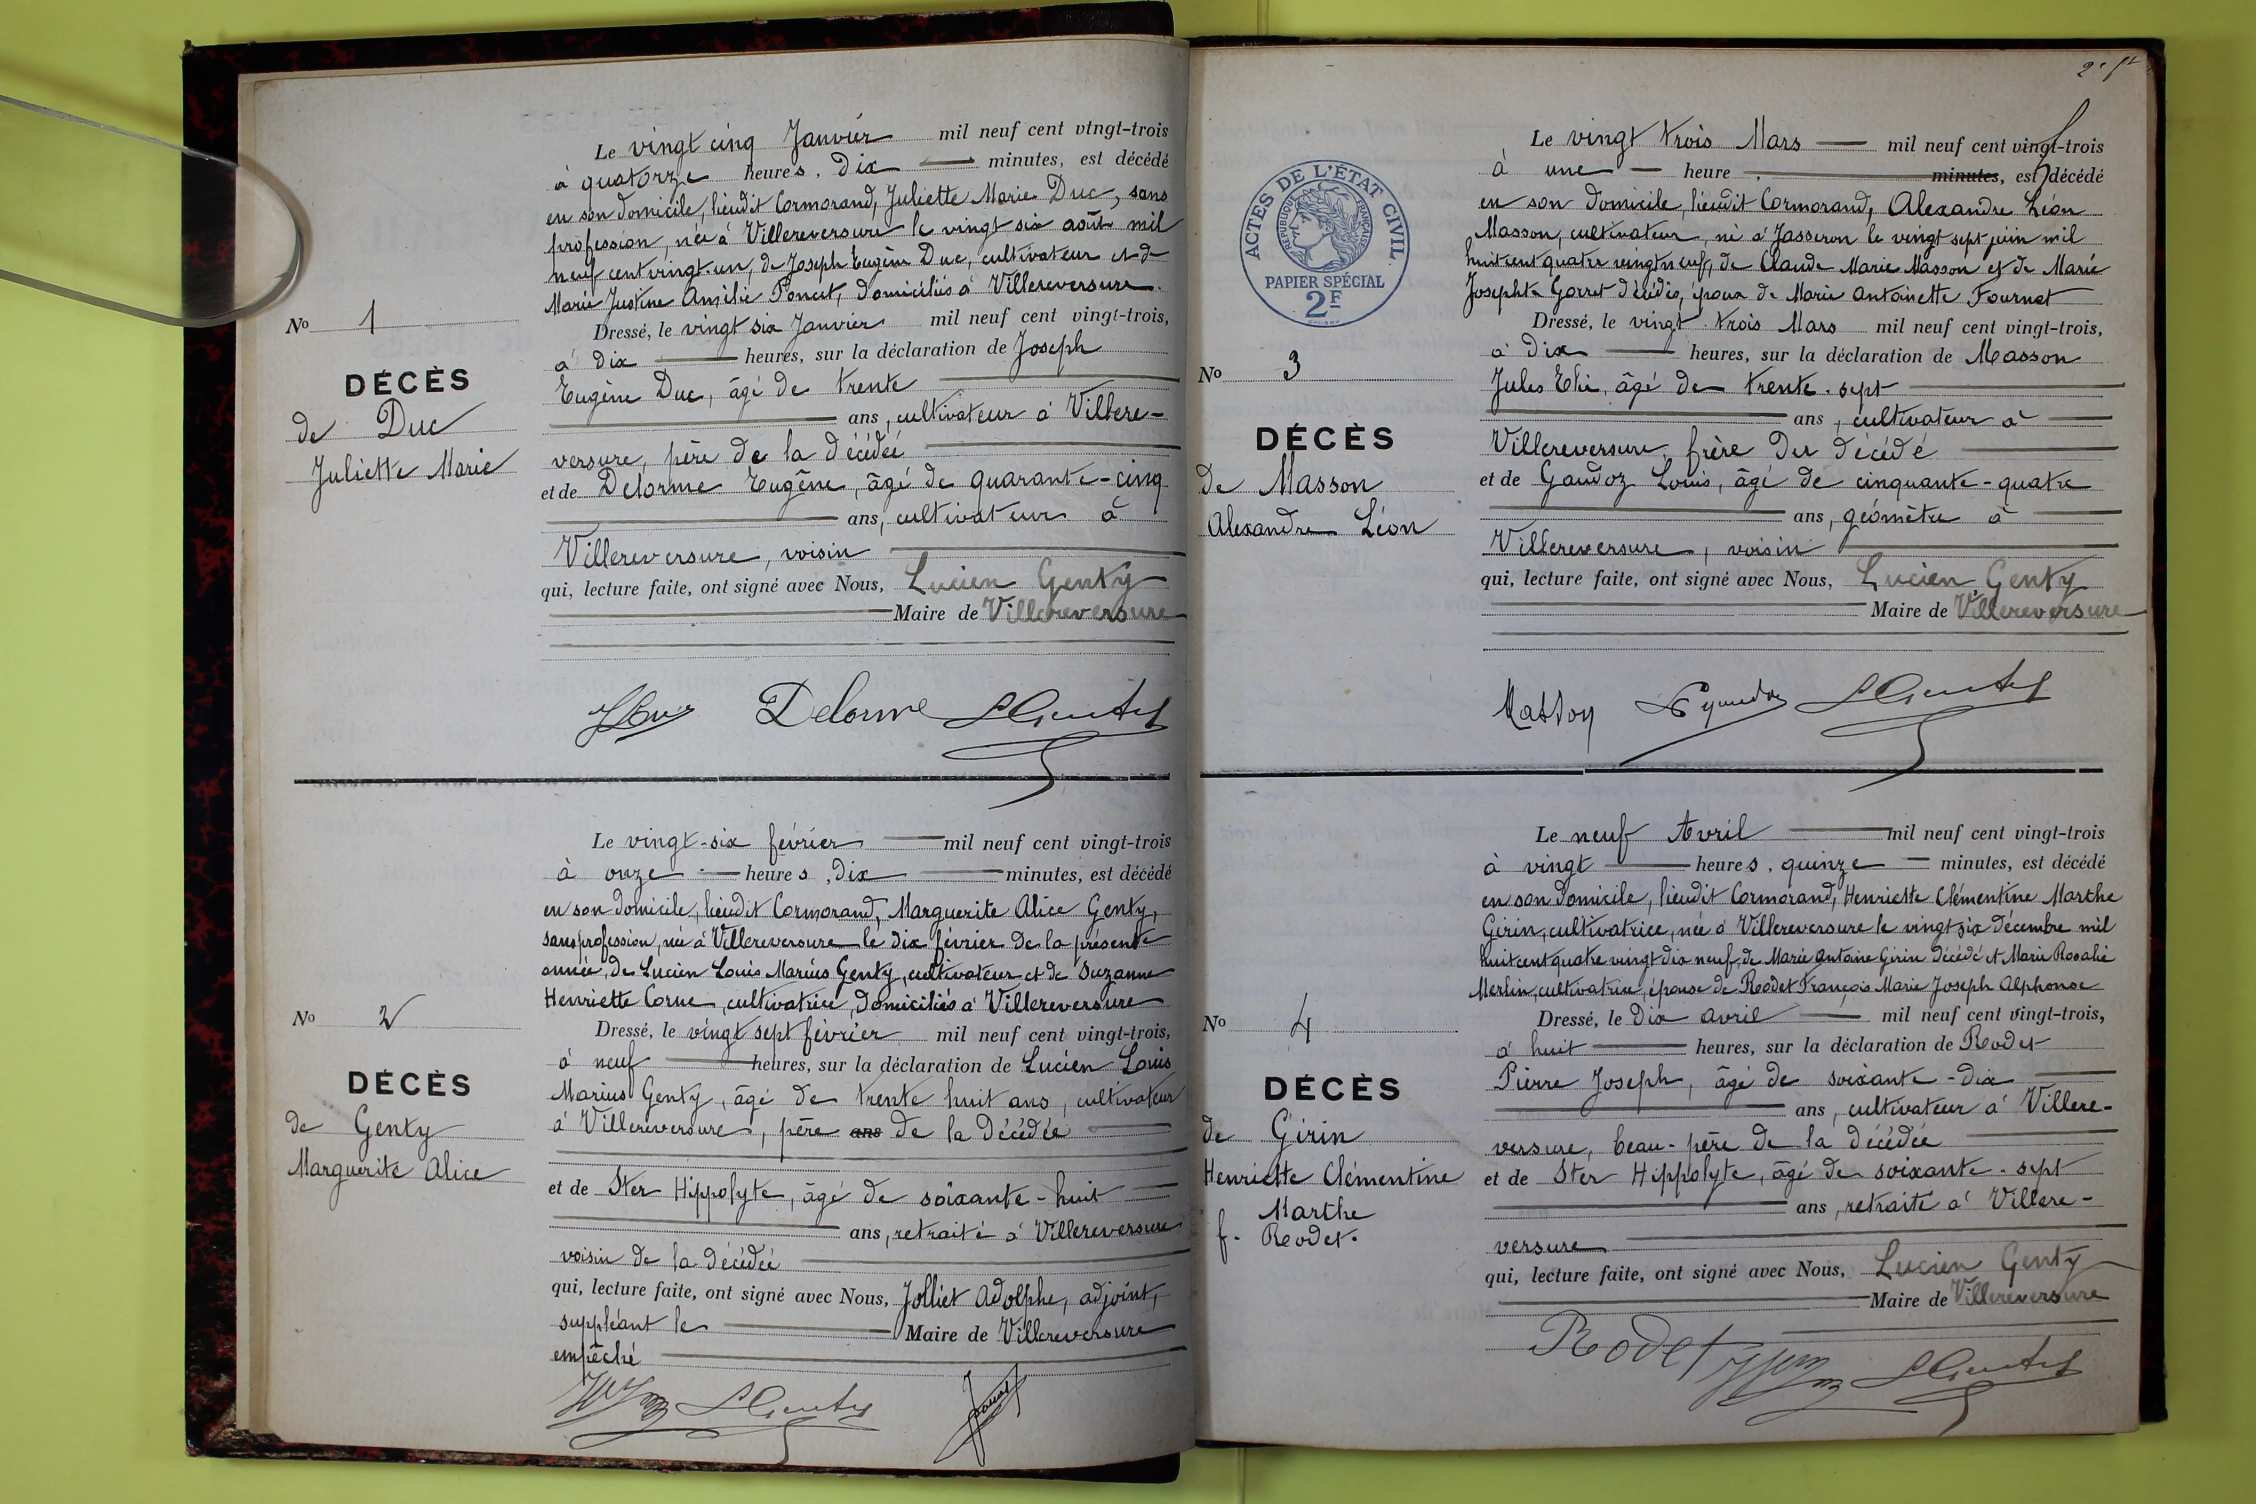 Le vingt cinq Janvier mil neuf cent vingt-trois
à quatorze heures, dix minutes, est décédé
en son domicile, lieudit Cormorand, Juliette Marie Duc, sans
profession, née à Villereversure le vingt six août mil
neuf cent vingt-un, de Joseph Eugène Duc, cultivateur et de
Marie Justine Amélie Poncet, domiciliés à Villereversure.
Dressé, le vingt six Janvier mil neuf cent vingt-trois,
à dix heures, sur la déclaration de Joseph
Eugène Duc, âgé de trente
ans, cultivateur à Villere-
versure, père de la décédée
et de Delorme Eugène, âgé de quarante-cinq
ans, cultivateur à
Villereversure, voisin
qui, lecture faite, ont signé avec Nous, Lucien Genty
Maire de Villereversure
No 1
DÉCÈS
de Duc
Juliette Marie
Delorme LGenty
Le vingt-six février mil neuf cent vingt-trois
à onze heures, dix minutes, est décédé
en son domicile, lieudit Cormorand, Marguerite Alice Genty,
sans profession, née à Villereversure le dix février de la présente
année, de Lucien Louis Marius Genty, cultivateur et de Suzanne
Henriette Corne, cultivatrice, domiciliés à Villereversure
Dressé, le vingt sept février mil neuf cent vingt-trois,
à neuf heures, sur la déclaration de Lucien Louis
Marius Genty, âgé de trente huit ans, cultivateur
à Villereversure, père ans de la décédée
et de Ster Hippolyte, âgé de soixante-huit
ans, retraité à Villereversure
voisin de la décédée
qui, lecture faite, ont signé avec Nous, Jolliet Adolphe, adjoint,
suppléant le Maire de Villereversure
empêché
No 2
DÉCÈS
de Genty
Marguerite Alice
LGenty
ACTES DE L'ÉTAT CIVIL
RÉPUBLIQUE FRANÇAISE
PAPIER SPÉCIAL
2F
Le vingt trois Mars mil neuf cent vingt-trois
à une heure minutes, est décédé
en son domicile, lieudit Cormorand, Alexandre Léon
Masson, cultivateur, né à Jasseron le vingt sept juin mil
huit cent quatre vingt neuf, de Claude Marie Masson et de Marie
Josephte Gorret décédés, époux de Marie Antoinette Fournet
Dressé, le vingt trois Mars mil neuf cent vingt-trois,
à dix heures, sur la déclaration de Masson
Jules Elie, âgé de trente-sept
ans, cultivateur à
Villereversure, frère du décédé
et de Gaudoz Louis, âgé de cinquante-quatre
ans, géomètre à
Villereversure, voisin
qui, lecture faite, ont signé avec Nous, Lucien Genty
Maire de Villereversure
No 3
DÉCÈS
de Masson
Alexandre Léon
Masson LGenty
Le neuf Avril mil neuf cent vingt-trois
à vingt heures, quinze minutes, est décédé
en son domicile, lieudit Cormorand, Henriette Clémentine Marthe
Girin, cultivatrice, née à Villereversure le vingt six décembre mil
huit cent quatre vingt dix neuf, de Marie Antoine Girin décédé et Marie Rosalie
Merlin, cultivatrice, épouse de Rodet François Marie Joseph Alphonse
Dressé, le dix avril mil neuf cent vingt-trois,
à huit heures, sur la déclaration de Rodet
Pierre Joseph, âgé de soixante-dix
ans, cultivateur à Villere-
versure, beau-père de la décédée
et de Ster Hippolyte, âgé de soixante-sept
ans, retraité à Villere-
versure
qui, lecture faite, ont signé avec Nous, Lucien Genty
Maire de Villereversure
No 4
DÉCÈS
de Girin
Henriette Clémentine
Marthe
f. Rodet.
Rodet LGenty